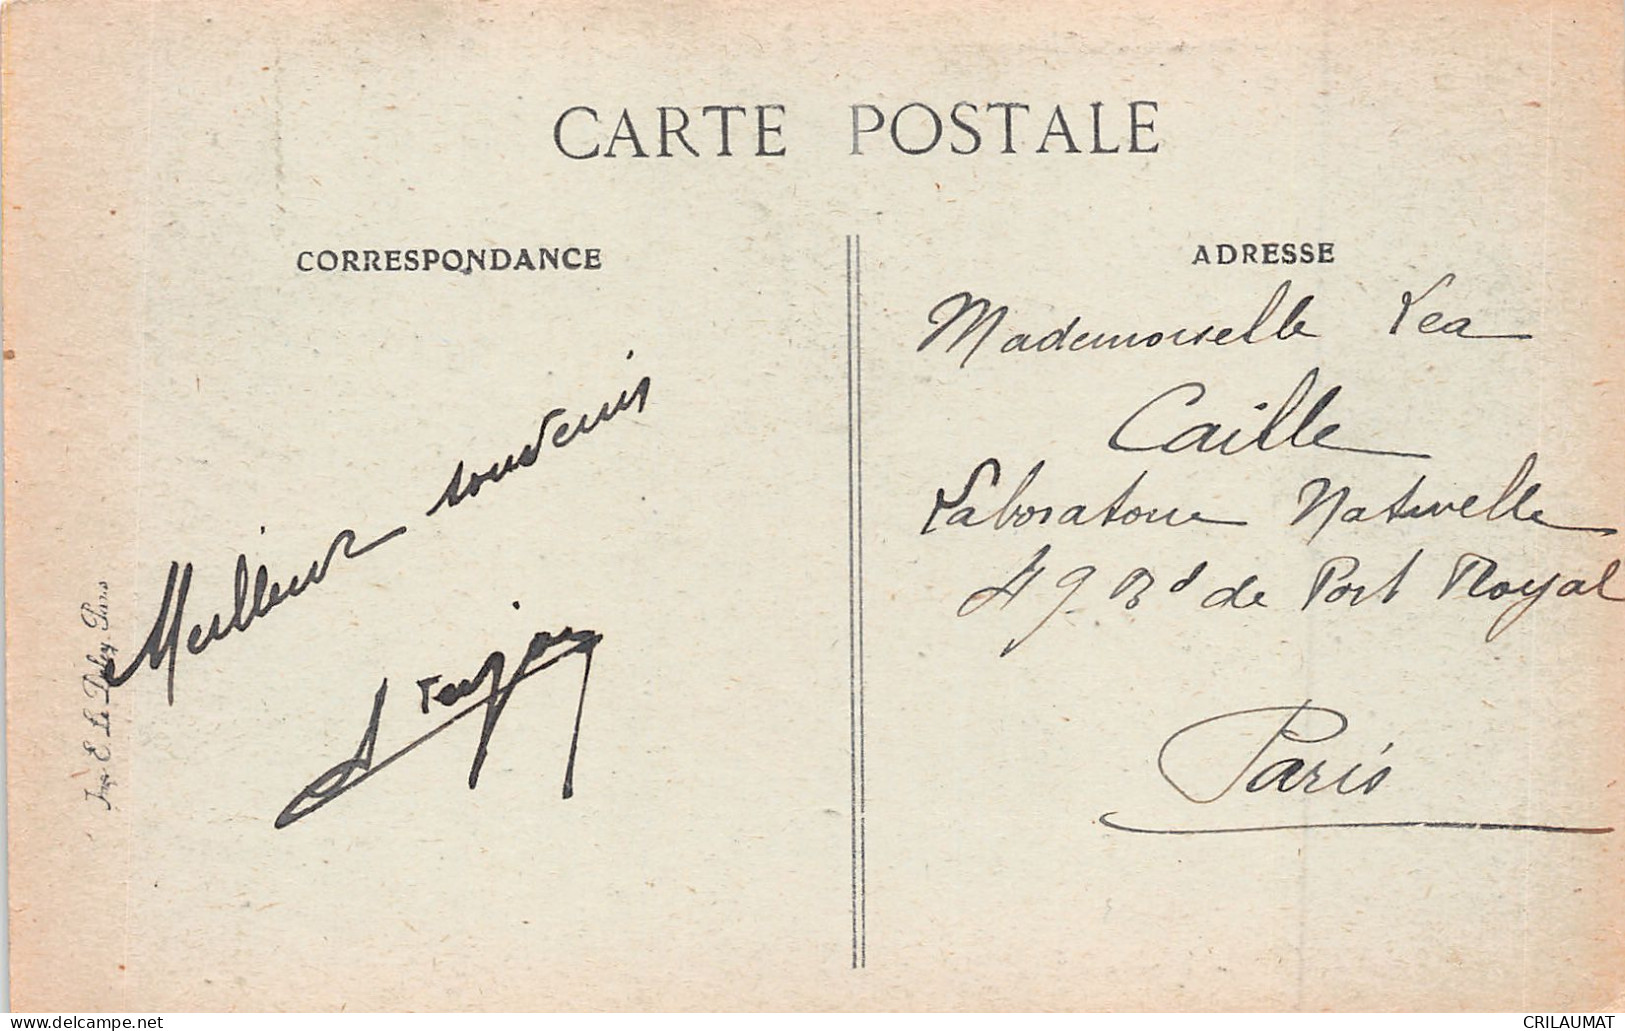 CARTE POSTALE
CORRESPONDANCE
Meilleur souvenir
Imp. E. Le Deley, Paris
ADRESSE
Mademoiselle Lea
Caille
Laboratoire Nativelle
49 Bd de Port Royal
Paris
delcampe.net
CRILAUMAT